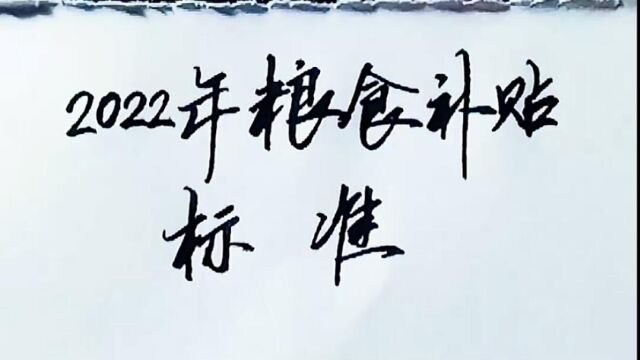 2022年粮食补贴
标准